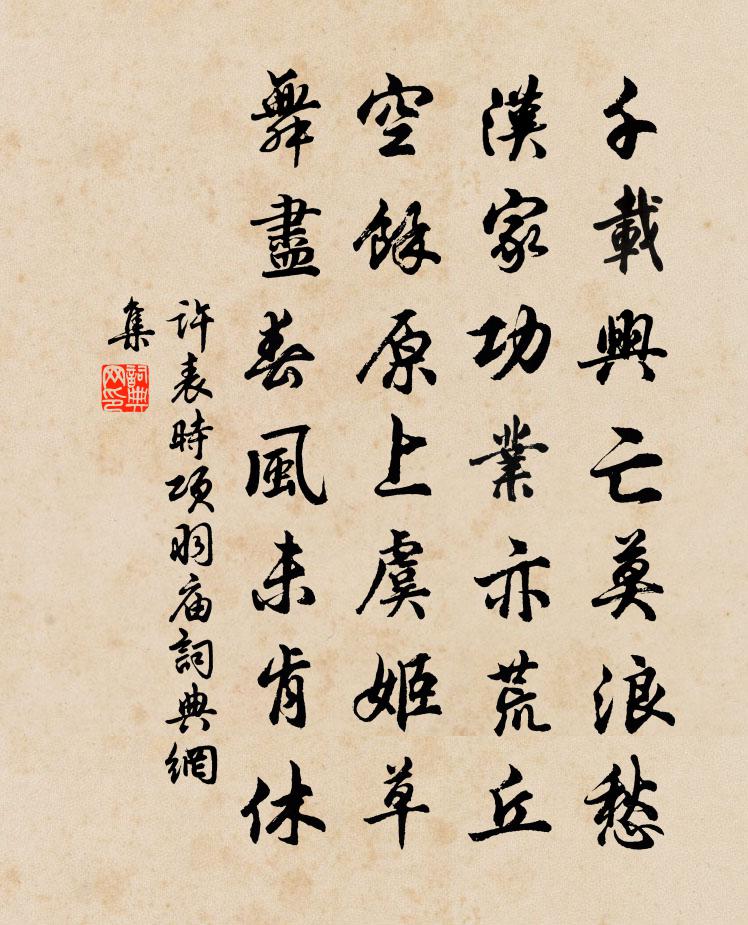 千載興亡莫浪愁
漢家功業亦荒丘
空餘原上虞姬草
舞盡春風未肯休
許表時項羽廟詞典網
集
詞典
网印